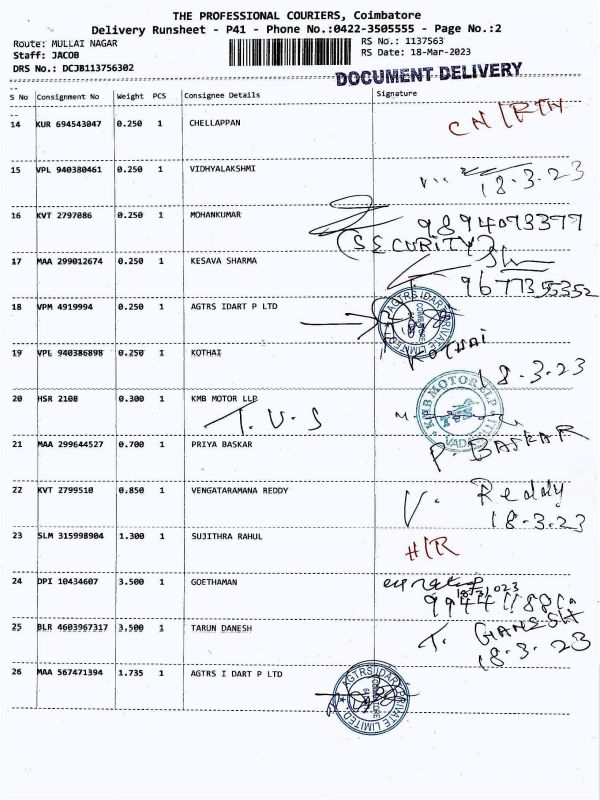 THE PROFESSIONAL COURIERS, Coimbatore
Delivery Runsheet - P41 - Phone No.:0422-3505555 - Page No.:2
Route: MULLAI NAGAR RS No.: 1137563
Staff: JACOB RS Date: 18-Mar-2023
DRS No.: DCJB113756302
DOCUMENT DELIVERY
S No Consignment No Weight PCS Consignee Details Signature
14 KUR 694543047 0.250 1 CHELLAPPAN
15 VPL 940380461 0.250 1 VIDHYALAKSHMI 18.3.23
16 KVT 2797086 0.250 1 MOHANKUMAR 9894073377
(SECURITY)
17 MAA 299012674 0.250 1 KESAVA SHARMA
9677355352
18 VPM 4919994 0.250 1 AGTRS IDART P LTD AGTRS IDART PRIVATE LIMITED
19 VPL 940386898 0.250 1 KOTHAI KOTHAI
18.3.23
20 HSR 2108 0.300 1 KMB MOTOR LLP KMB MOTOR LLP
T.V.S
21 MAA 299644527 0.700 1 PRIYA BASKAR P. BASKAR
22 KVT 2799510 0.850 1 VENGATARAMANA REDDY V. Reddy
18.3.23
23 SLM 315998904 1.300 1 SUJITHRA RAHUL H/R
24 DPI 10434607 3.500 1 GOETHAMAN
25 BLR 4603967317 3.500 1 TARUN DANESH T. GANESH
18.3.23
26 MAA 567471394 1.735 1 AGTRS I DART P LTD AGTRS IDART PRIVATE LIMITED